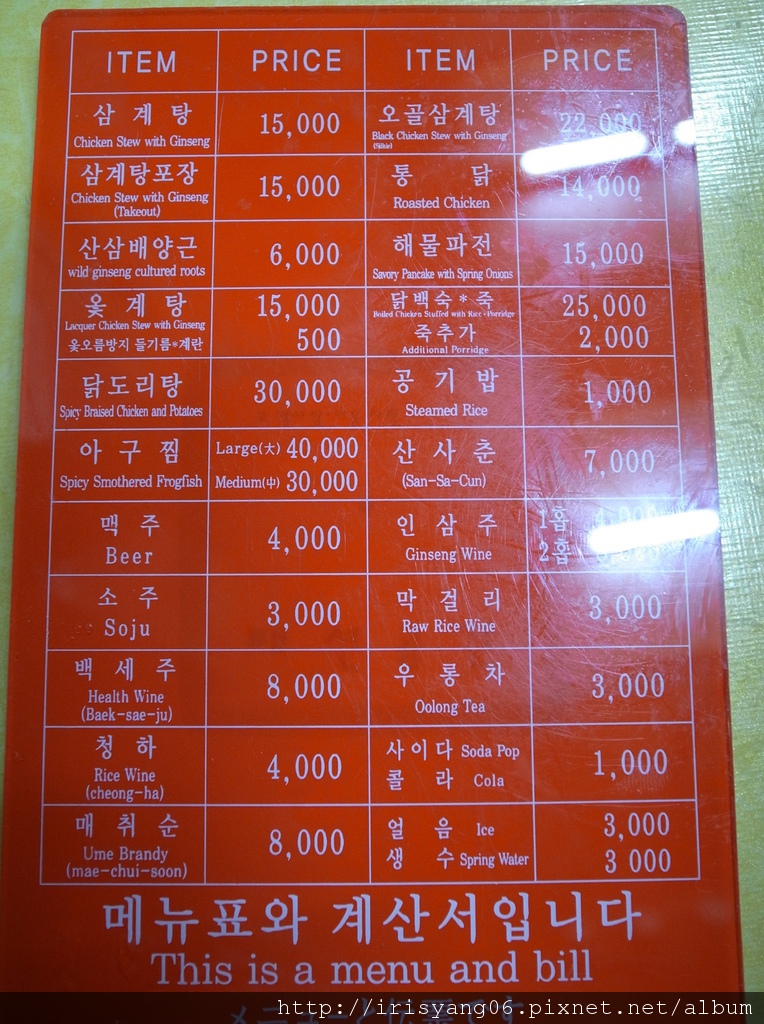 ITEM PRICE ITEM PRICE
삼계탕 15,000 오골삼계탕 22,000
Chicken Stew with Ginseng Black Chicken Stew with Ginseng
(Silkie)
삼계탕포장 15,000 통닭 14,000
Chicken Stew with Ginseng Roasted Chicken
(Takeout)
산삼배양근 6,000 해물파전 15,000
wild ginseng cultured roots Savory Pancake with Spring Onions
옻계탕 15,000 닭백숙*죽 25,000
Lacquer Chicken Stew with Ginseng Boiled Chicken Stuffed with Rice·Porridge
옻오름방지 들기름*계란 500 죽추가 2,000
Additional Porridge
닭도리탕 30,000 공기밥 1,000
Spicy Braised Chicken and Potatoes Steamed Rice
아구찜 Large(大) 40,000 산사춘 7,000
Spicy Smothered Frogfish Medium(中) 30,000 (San-Sa-Cun)
맥주 4,000 인삼주 1홉
Beer Ginseng Wine 2홉
소주 3,000 막걸리 3,000
Soju Raw Rice Wine
백세주 8,000 우롱차 3,000
Health Wine Oolong Tea
(Baek-sae-ju)
청하 4,000 사이다 Soda Pop 1,000
Rice Wine 콜라 Cola
(cheong-ha)
매취순 8,000 얼음 Ice 3,000
Ume Brandy 생수 Spring Water 3 000
(mae-chui-soon)
메뉴표와 계산서입니다
This is a menu and bill
http://irisyang06.pixnet.net/album